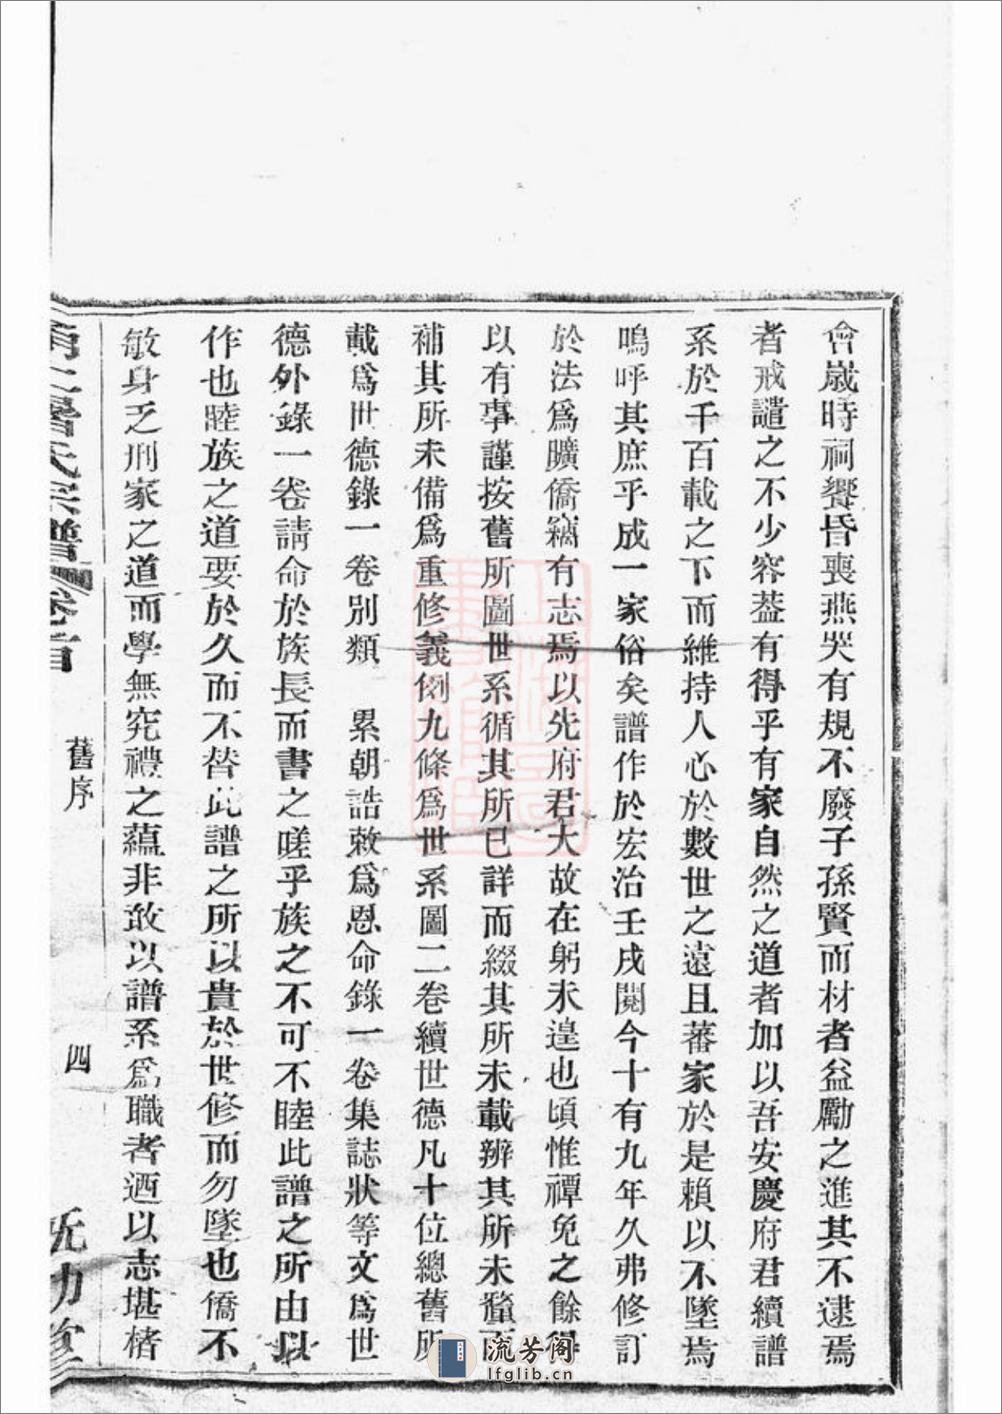 會嵗時祠饗昏喪燕哭有規不廢子孫賢而材者益勵之進其不逮焉
者戒譴之不少容葢有得乎有家自然之道者加以吾安慶府君續譜
系於千百載之下而維持人心於數世之遠且蕃家於是賴以不墜焉
嗚呼其庶乎成一家俗矣譜作於宏治壬戌閱今十有九年久弗修訂
於法爲曠僑竊有志焉以先府君大故在躬未遑也頃惟禫免之餘得
以有事謹按舊所圖世系循其所已詳而綴其所未載辨其所未釐而
補其所未備爲重修義例九條爲世系圖二卷續世德凡十位總舊所
載爲世德錄一卷別類 累朝誥敕爲恩命錄一卷集誌狀等文爲世
德外錄一卷請命於族長而書之嗟乎族之不可不睦此譜之所由以
作也睦族之道要於久而不替此譜之所以貴於世修而勿墜也僑不
敏身乏刑家之道而學無究禮之蘊非敢以譜系爲職者迺以志堪楮
氏宗譜 卷首
舊序
四
流芳阁
lfglib.cn